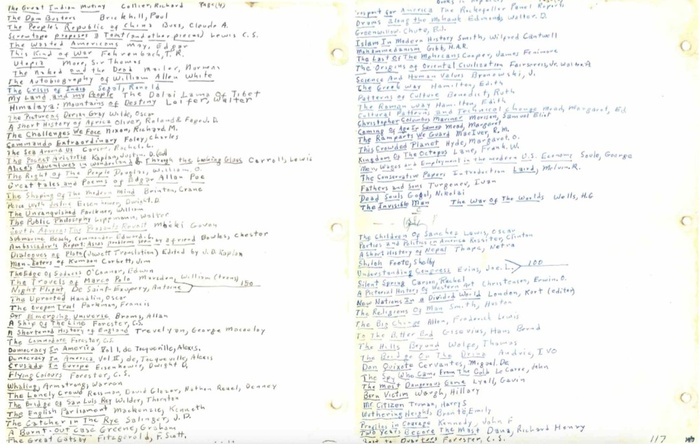 The Great Indian Mutiny Collier, Richard
The Dam Busters Brickhill, Paul
The People's Republic of China Buss, Claude A.
Screwtape Proposes a Toast (and other pieces) Lewis C.S.
The Wasted Americans May, Edgar
This Kind of War Fehrenbach, T.R.
Utopia More, Sir Thomas
The Naked and the Dead Mailer, Norman
The Autobiography of William Allen White
The Crisis of India Segal, Ronald
My Land and my People The Dalai Lama of Tibet
Himalaya: Mountains of Destiny Laifer, Walter
The Picture of Dorian Gray Wilde, Oscar
A Short History of Africa Oliver, Roland & Fage, J.D.
The Challenges We Face Nixon, Richard M.
Commando Extraordinary Foley, Charles
The Sea Around Us Carson, Rachel L.
The Pocket Aristotle Kaplan, Justin D.
Alice's Adventures in Wonderland & Through the Looking Glass Carroll, Lewis
The Right of The People Douglas, William O.
Great Tales and Poems of Edgar Allan Poe
The Shaping Of The Modern Mind Brinton, Crane
Eisenhower, Dwight D.
The Unvanquished Faulkner, William
The Public Philosophy Lippmann, Walter
South Africa: The Peasants Revolt Mbeki Govan
Submarine Beach, Commander Edward L.
Ambassador's Report Bowles, Chester
Dialogues of Plato (Jowett Translation) Edited by J.D. Kaplan
Man-Eaters of Kumaon Corbett, Jim
The Edge of Sadness O'Connor, Edwin
The Travels of Marco Polo Marsden, William (trans)
Night Flight De Saint-Exupery, Antoine 150
The Uprooted Handlin, Oscar
The Oregon Trail Parkman, Francis
Our Emerging Universe Broms, Allan
A Ship Of The Line Forester, C.S.
A Shortened History of England Trevelyan, George Macaulay
The Commodore Forester, C.S.
Democracy In America Vol I, de Tocqueville, Alexis.
Democracy In America Vol II, de Tocqueville, Alexis
Crusade In Europe Eisenhower, Dwight D.
Flying Colours Forester, C.S.
Whaling, Armstrong, Warren
The Lonely Crowd Riesman, David Glazer, Nathan Reuel, Denney
The Bridge of San Luis Rey Wilder, Thornton
The English Parliament Mackenzie, Kenneth
The Catcher In The Rye Salinger, J.D.
A Burnt-Out Case Greene, Graham
The Great Gatsby Fitzgerald, F. Scott,
Prospect for America The Rockefeller Panel Reports
Drums Along the Mohawk Edmonds, Walter D.
Greenwillow Chute, B.J.
Islam In Modern History Smith, Wilfred Cantwell
Mohammedanism Gibb, H.A.R.
The Last Of The Mohicans Cooper, James Fenimore
The Origins of Oriental Civilization Fairservis, Jr, Walter A
Science And Human Values Bronowski, J.
The Greek Way Hamilton, Edith
Patterns of Culture Benedict, Ruth
The Roman Way Hamilton, Edith
Cultural Patterns and Technical Change Mead, Margaret, Ed.
Christopher Columbus, Mariner Morison, Samuel Eliot
Coming of Age In Samoa Mead, Margaret
The Ramparts We Guard MacIver, R.M.
This Crowded Planet Hyde, Margaret, O.
Kingdom Of The Octopus Lane, Frank, W.
Wages and Employment in the modern U.S. Economy Soule, George
The Conservative Papers Introduction Laird, Melvin R.
Fathers and Sons Turgenev, Ivan
Dead Souls Gogol, Nikolai
The Invisible Man The War of The Worlds Wells, H.G
The Children Of Sanchez Lewis, Oscar
Parties and Politics in America Rossiter, Clinton
A Short History of Nepal Thapa, Netra
Shiloh Foote, Shelby
Understanding Congress Evins, Joe L. 100
Silent Spring Carson, Rachel
A Pictorial History of Western Art Christensen, Erwin O.
New Nations In A Divided World London, Kurt (editor)
The Religions Of Man Smith, Huston
The Big Change Allen, Frederick Lewis
To The Bitter End Gisevius, Hans Bernd
The Hills Beyond Wolfe, Thomas
The Bridge On The Drina Andric, IVO
Don Quixote Cervantes, Miguel De
The Spy Who Came From The Cold Le Carre, John
The Most Dangerous Game Lyall, Gavin
Born Victim Waugh, Hillary
Mr Citizen Truman, Harry S
Wuthering Heights, Brontë, Emily
Profiles In Courage Kennedy, John F
Two Years Before The Mast Dana, Richard Henry
Forester, C.S.
117